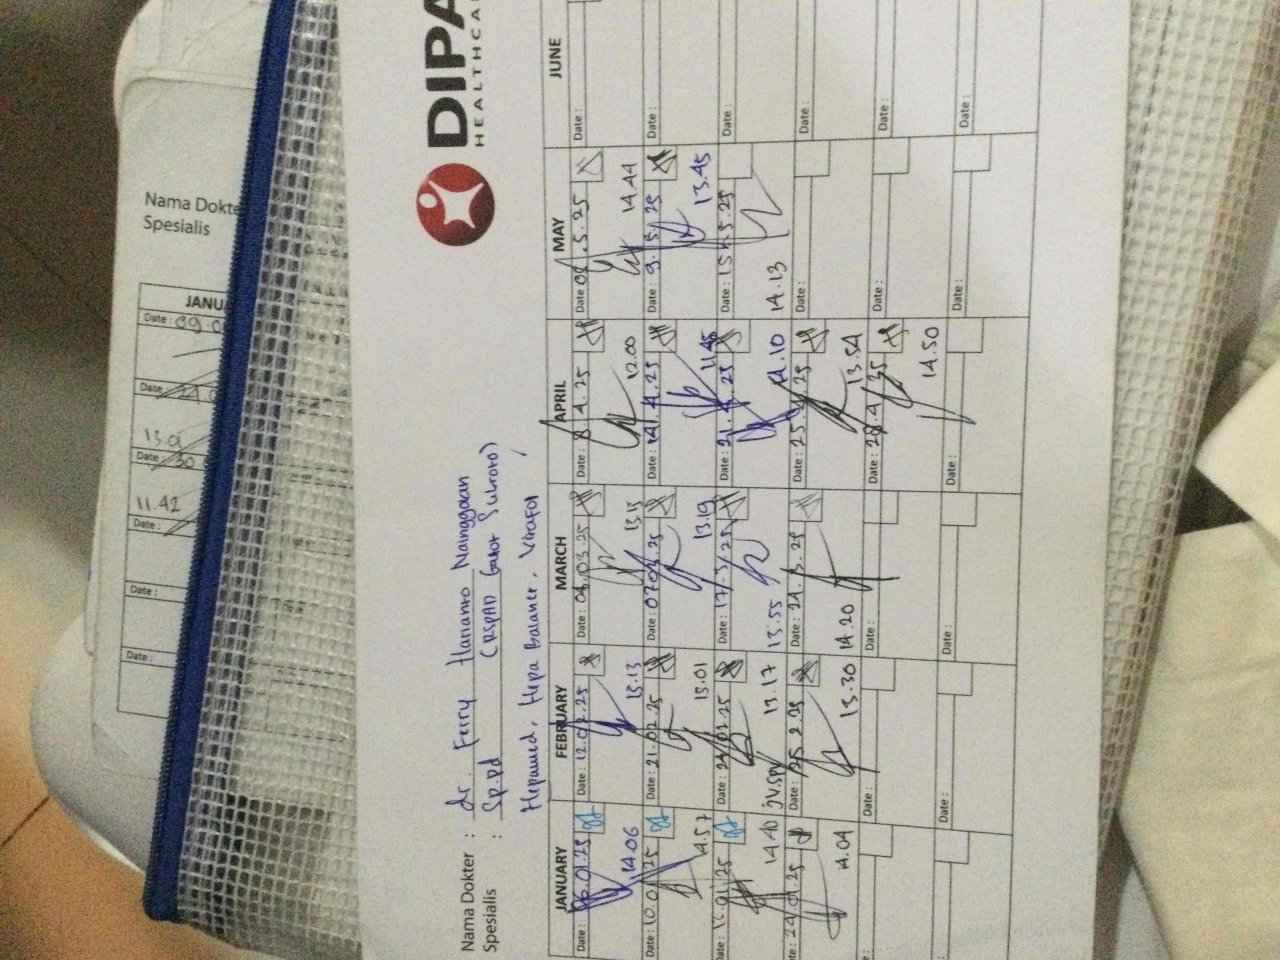 DIPA
HEALTHCA
Nama Dokter : dr. Ferry Hananto Nainggoan
Spesialis : Sp.pd (RSPAD Gatot Subroto)
Hepamed, Hepa Balance,
JANUARY FEBRUARY MARCH APRIL MAY JUNE
Date : 06.01.25 Date : 12.02.25 Date : 04.03.25 Date : 8.4.25 Date : .5.25 Date :
14.06 13.13 13.13 12.00 14.44
Date : 10.01.25 Date : 21.02.25 Date : 07.03.25 Date : 14.25 Date : 9.5.25 Date :
14.57 13.01 13.19 11.45 13.45
Date : .01.25 Date : 24.02.25 Date : 17/3/25 Date : 21.4.25 Date : 15.5.25 Date :
14.40 13.17 13.55 14.10 14.13
Date : 24.01.25 Date : 25.2.25 Date : 24.3.25 Date : 25.4.25 Date : Date :
14.04 13.30 14.20 13.54
Date : Date : Date : 28.4.25 Date : Date :
14.50
Date : Date : Date : Date : Date :
Nama Dokte
Spesialis
JANUA
Date : 09.0
Date :
13.0
Date : 30
11.42
Date :
Date :
Date :